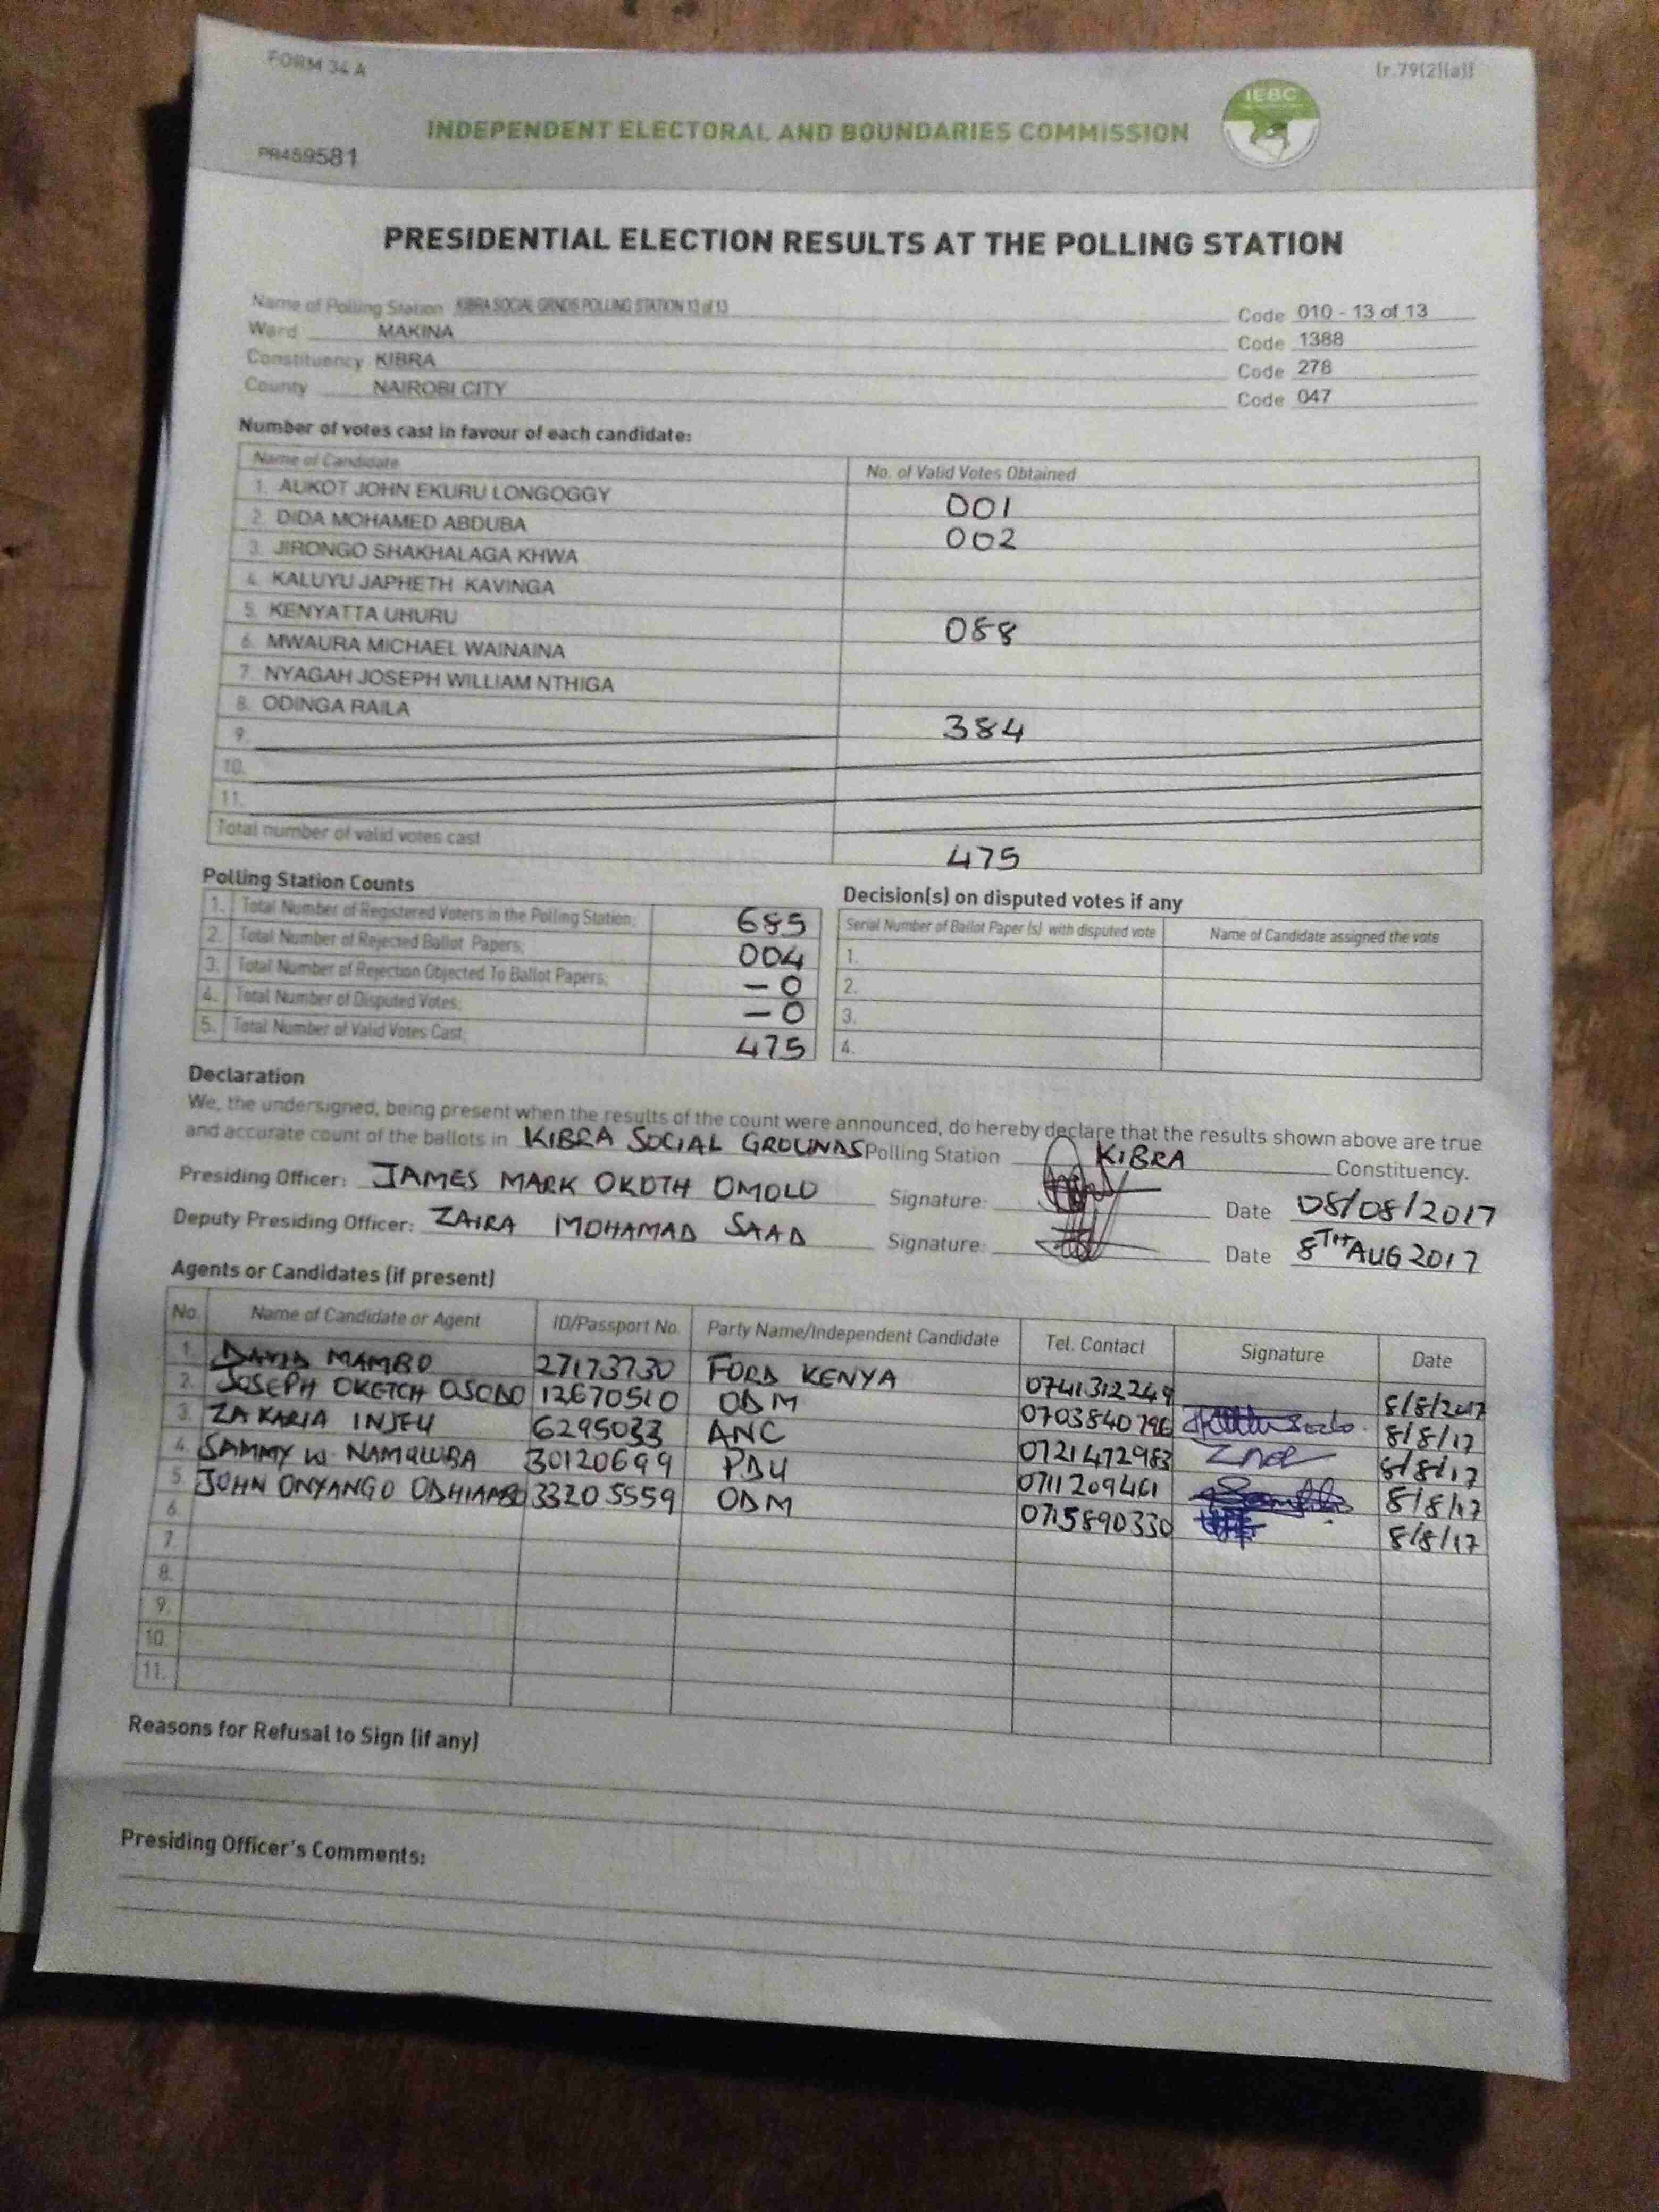 FORM 34 A
(r.79(2)(a))
IEBC
INDEPENDENT ELECTORAL AND BOUNDARIES COMMISSION
PR459581
PRESIDENTIAL ELECTION RESULTS AT THE POLLING STATION
Name of Polling Station KIBRA SOCIAL GRNDS POLLING STATION 13 of 13 Code 010 - 13 of 13
Ward MAKINA Code 1388
Constituency KIBRA Code 278
County NAIROBI CITY Code 047
Number of votes cast in favour of each candidate:
Name of Candidate No. of Valid Votes Obtained
1. AUKOT JOHN EKURU LONGOGGY 001
2. DIDA MOHAMED ABDUBA 002
3. JIRONGO SHAKHALAGA KHWA
4. KALUYU JAPHETH KAVINGA
5. KENYATTA UHURU 088
6. MWAURA MICHAEL WAINAINA
7. NYAGAH JOSEPH WILLIAM NTHIGA
8. ODINGA RAILA 384
9.
10.
11.
Total number of valid votes cast 475
Polling Station Counts
1. Total Number of Registered Voters in the Polling Station; 685
2. Total Number of Rejected Ballot Papers; 004
3. Total Number of Rejection Objected To Ballot Papers; – 0
4. Total Number of Disputed Votes; – 0
5. Total Number of Valid Votes Cast; 475
Decision(s) on disputed votes if any
Serial Number of Ballot Paper (s) with disputed vote Name of Candidate assigned the vote
1.
2.
3.
4.
Declaration
We, the undersigned, being present when the results of the count were announced, do hereby declare that the results shown above are true
and accurate count of the ballots in KIBRA SOCIAL GROUNDS Polling Station KIBRA Constituency.
Presiding Officer: JAMES MARK OKOTH OMOLO Signature: Date 08/08/2017
Deputy Presiding Officer: ZAIRA MOHAMAD SAAD Signature: Date 8TH AUG 2017
Agents or Candidates (if present)
No. Name of Candidate or Agent ID/Passport No. Party Name/Independent Candidate Tel. Contact Signature Date
1. DAVID MAMBO 27173730 FORD KENYA 0741312249 8/8/2017
2. JOSEPH OKETCH OSODO 12670510 ODM 0703840796 8/8/17
3. ZAKARIA INJEU 6295033 ANC 0721472983 8/8/17
4. SAMMY W. 30120699 PDU 0711209461 8/8/17
5. JOHN ONYANGO ODHIAMBO 33205559 ODM 0715890330 8/8/17
6.
7.
8.
9.
10.
11.
Reasons for Refusal to Sign (if any)
Presiding Officer's Comments: